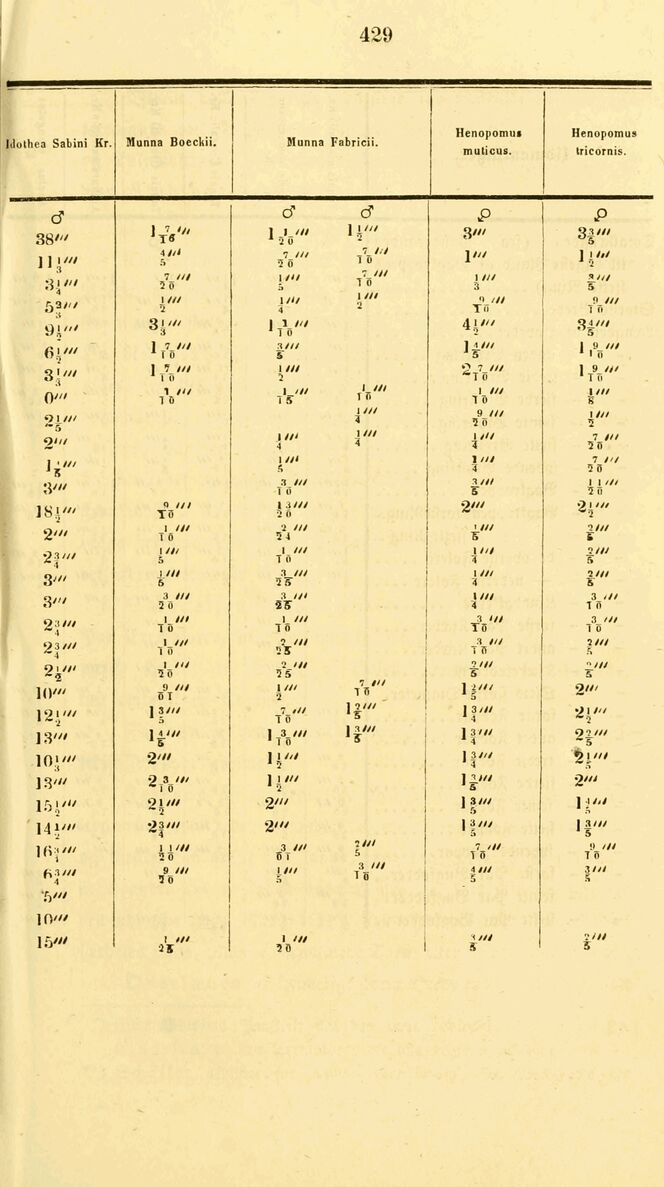 429
Idothea Sabini Kr. | Munna Boeckii. | Munna Fabricii. | Henopomus muticus. | Henopomus tricornis.
♂ | | ♂ ♂ | ♀ | ♀
38''' | 1 7/16''' | 1 1/20''' 1 1/2''' | 3''' | 3 3/5'''
11 1/3''' | 4/5''' | 7/20''' 7/10''' | 1''' | 1 1/2'''
3 1/4''' | 7/20''' | 1/5''' 7/10''' | 1/3''' | 3/5'''
5 2/3''' | 1/2''' | 1/4''' 1/2''' | 9/10''' | 9/10'''
9 1/2''' | 3 1/3''' | 1 1/10''' | 4 1/2''' | 3 4/5'''
6 1/2''' | 1 7/10''' | 3/5''' | 1 4/5''' | 1 9/10'''
3 1/3''' | 1 7/10''' | 1/2''' | 2 7/10''' | 1 9/10'''
0''' | 1/10''' | 1/15''' 1/10''' | 1/10''' | 1/8'''
2 1/5''' | | 1/4''' | 9/20''' | 1/2'''
2''' | | 1/4''' 1/4''' | 1/4''' | 7/20'''
1 1/5''' | | 1/5''' | 1/4''' | 7/20'''
3''' | | 3/10''' | 3/5''' | 11/20'''
18 1/2''' | 9/10''' | 13/20''' | 2''' | 2 1/2'''
2''' | 1/10''' | 2/24''' | 1/5''' | 2/5'''
2 3/4''' | 1/5''' | 1/10''' | 1/4''' | 2/5'''
3''' | 1/5''' | 3/25''' | 1/4''' | 2/5'''
3''' | 3/20''' | 3/25''' | 1/4''' | 3/10'''
2 3/4''' | 1/10''' | 1/10''' | 3/10''' | 3/10'''
2 3/4''' | 1/10''' | 2/25''' | 3/10''' | 2/5'''
2 1/2''' | 1/20''' | 2/25''' | 2/5''' | 2/5'''
10''' | 9/01''' | 1/2''' 7/10''' | 1 2/5''' | 2'''
12 1/2''' | 1 3/5''' | 7/10''' 1 2/5''' | 1 3/4''' | 2 1/2'''
13''' | 1 4/5''' | 1 3/10''' 1 3/5''' | 1 3/4''' | 2 2/5'''
10 1/3''' | 2''' | 1 1/2''' | 1 3/4''' | 2 1/5'''
13''' | 2 3/10''' | 1 1/2''' | 1 3/5''' | 2'''
15 1/2''' | 2 1/2''' | 2''' | 1 3/5''' | 1 4/5'''
14 1/2''' | 2 3/4''' | 2''' | 1 3/5''' | 1 3/5'''
16 3/4''' | 11/20''' | 3/01''' 2/5''' | 7/10''' | 9/10'''
6 3/4''' | 9/20''' | 1/5''' 3/10''' | 4/5''' | 3/5'''
5'''
10'''
15''' | 1/25''' | 1/20''' | 3/5''' | 2/5'''